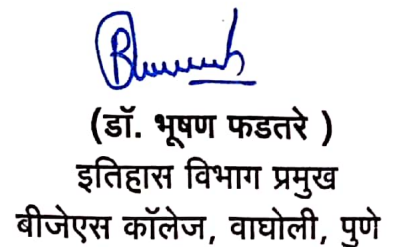 (डॉ. भूषण फडतरे )
इतिहास विभाग प्रमुख
बीजेएस कॉलेज, वाघोली, पुणे